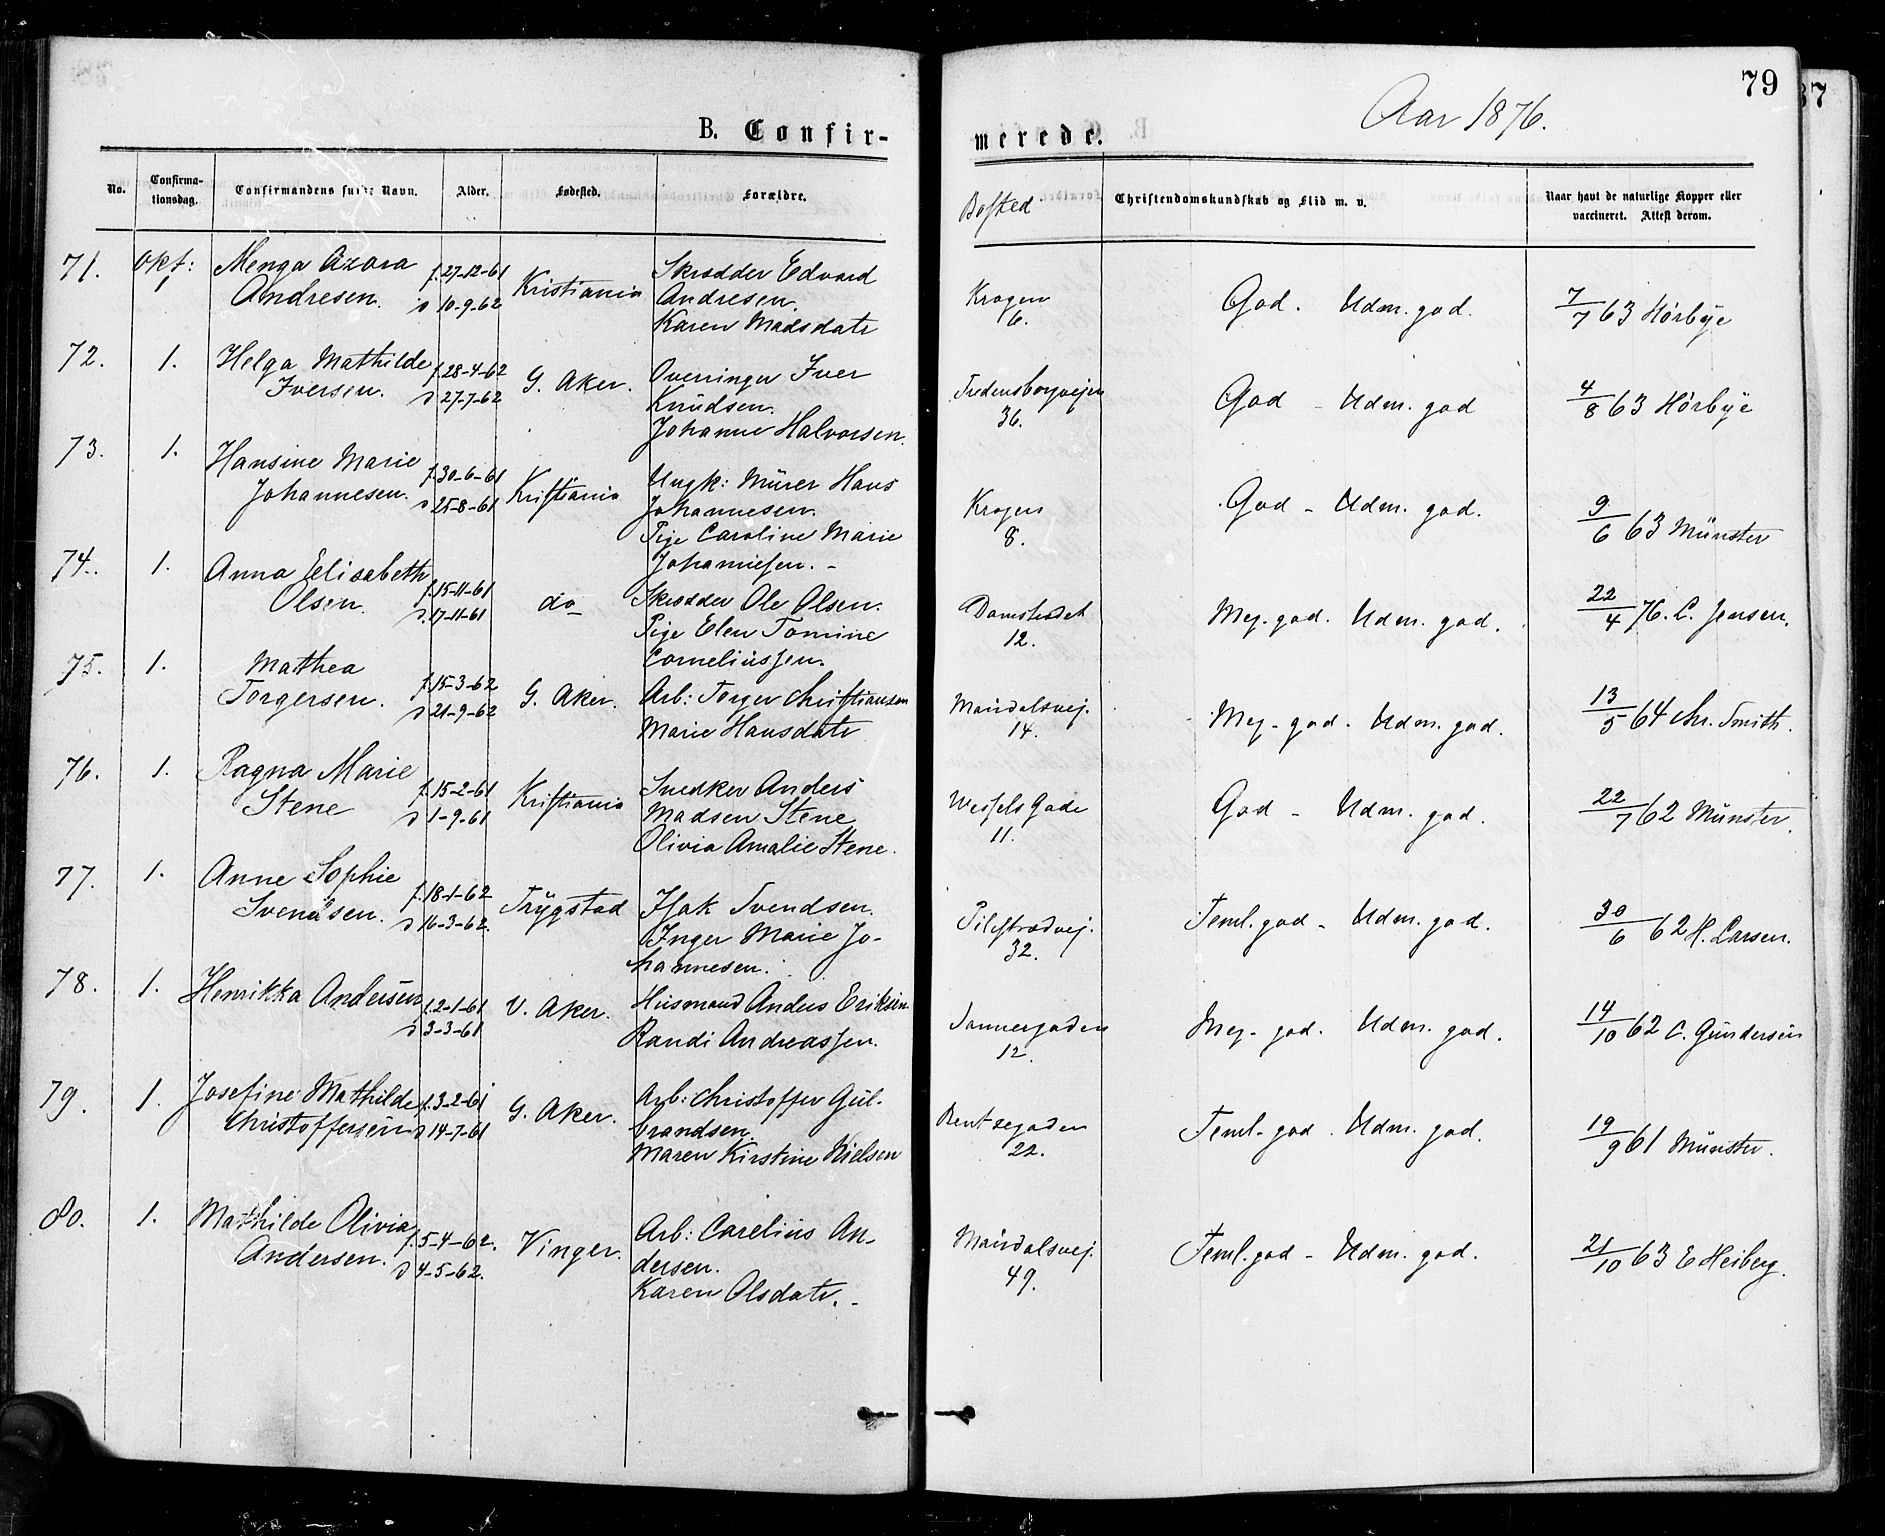 79
37
Aar 1876.
B. Confir-
merede.
No.
Confirma-
tionsdag.
Confirmandens fulde Navn.
Alder.
Fødested.
Forældre.
Bosted
Christendomskundskab og Flid m. v.
Naar havt de naturlige Kopper eller
vaccineret. Attest derom.
71. Okt: Menga Azora f. 27-12-61 Skrædder Edvard
1 Andresen. d 10-9-62 Kristiania Andresen.
Karen Madsdatr
Krogen God. Udm. god. 7/7 63 Hörbye
6.
72. 1. Helga Mathilde f. 28-4-62 G. Aker. Overringer Iver
Iversen. d 27-7-62 Knudsen.
Johanne Halvorsen.
Fredensborgvejen God - Udm. god 4/8 63 Hörbye
36.
73. 1. Hansine Marie f. 30-6-61 Kristiania Ungk: Murer Hans
Johannesen. d 25-8-61 Johannesen.
Pige Caroline Marie
Johannesen. -
Krogen God - Udm. god. 9/6 63 Münster
8.
74. 1. Anna Elisabeth f. 15-11-61 do Skrædder Ole Olsen.
Olsen. d. 17-11-61 Pige Elen Tomine
Corneliussen.
Damstredet Meg. god. Udm. god. 22/4 76. C. Jensen.
12.
75. 1. Mathea f. 15-3-62 G. Aker. Arb: Torger Christiansen
Torgersen. d 21-9-62 Marie Hansdatr
Maridalsvej. Meg- god. Udm. god. 13/5 64 Chr. Smith.
14.
76. 1. Ragna Marie f. 15-2-61 Kristiania Snedker Anders
Stene d 1-9-61 Madsen Stene
Olivia Amalie Stene.
Wessels Gade God - Udm. god. 22/7 62 Münster.
11.
77. 1. Anne Sophie f. 18-1-62 Trygstad Isak Svendsen.
Svendsen. d 16-3-62. Inger Marie Jo-
hannesen.
Pilestrædvej. Teml. god - Udm. god. 30/6 62 H. Larsen.
32.
78. 1. Henrikka Andersen f. 2-1-61 V. Aker. Husmand Anders Eriksen
d 3-3-61 Randi Andreassen.
Sannergaden Meg- god. Udm. god. 14/10 62 C. Gundersen
12.
79. 1. Josefine Mathilde f. 3-2-61 G. Aker. Arb: Christoffer Gul-
Christoffersen d 14-7-61 brandsen.
Maren Kirstine Nielsen
Bentsegaden Teml- god. Udm. god. 19/9 61 Münster.
22.
80. 1. Mathilde Olivia f. 5-4-62. Vinger. Arb: Carelius An-
Andersen. d 4-5-62. dersen.
Karen Olsdatr. -
Maridalsvej. Teml. god - Udm. god. 21/10 63 E Heiberg.
49.